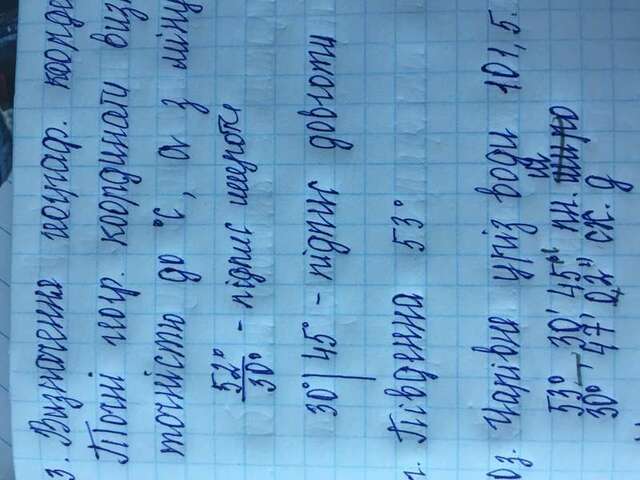 3. Визначення географ. коорде
Точні геогр. координати виз
точністю до °С, а з міну
52°
30° - підпис широти
30° | 45° - підпис довготи
г. Південна 53°
Оз. Чарівне уріз води 101,5.
53° 30' 45" пн. ш
30° 47' 0,2" сх. д